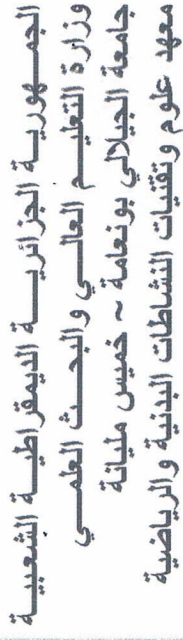 الجمهورية الجزائرية الديمقراطية الشعبية
وزارة التعليم العالي والبحث العلمي
جامعة الجيلالي بونعامة ~ خميس مليانة
معهد علوم وتقنيات النشاطات البدنية والرياضية